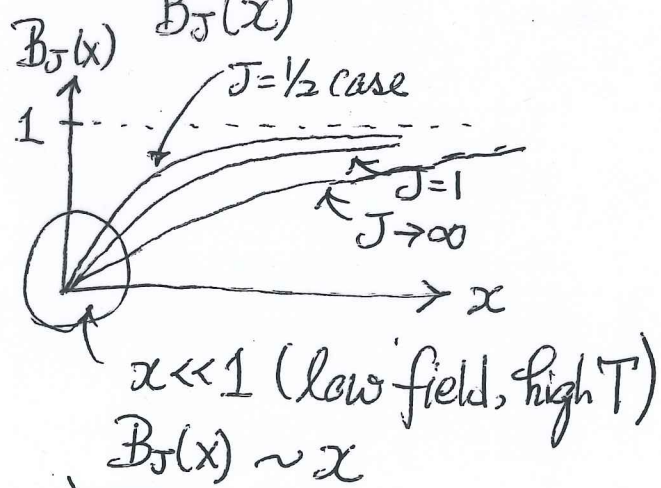 B_J(x)
B_J(x)
J=½ case
1
J=1
J→∞
x
x<<1 (low field, high T)
B_J(x) ~ x